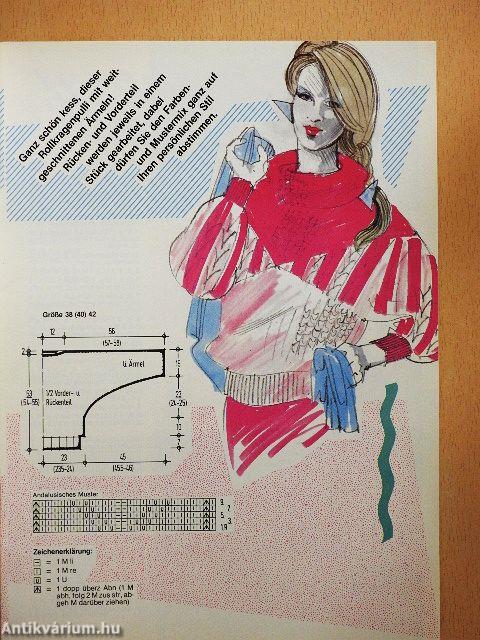 Ganz schön kess, dieser
Rollkragenpulli mit weit-
geschnittenen Ärmeln!
Rücken- und Vorderteil
werden jeweils in einem
Stück gearbeitet, dabei
dürfen Sie den Farben-
und Mustermix ganz auf
Ihren persönlichen Stil
abstimmen.
Größe 38 (40) 42
12 56
(57-58)
2
ü. Ärmel
15
53
(54-55)
1/2 Vorder- u.
Rückenteil
23
(24-25)
10
7
23 45
(23,5-24) (45,5-46)
Andalusisches Muster
Zeichenerklärung:
– = 1 M li
I = 1 M re
U = 1 U
= 1 dopp überz Abn (1 M
abh, folg 2 M zus str, ab-
geh M darüber ziehen)
Antikvárium.hu